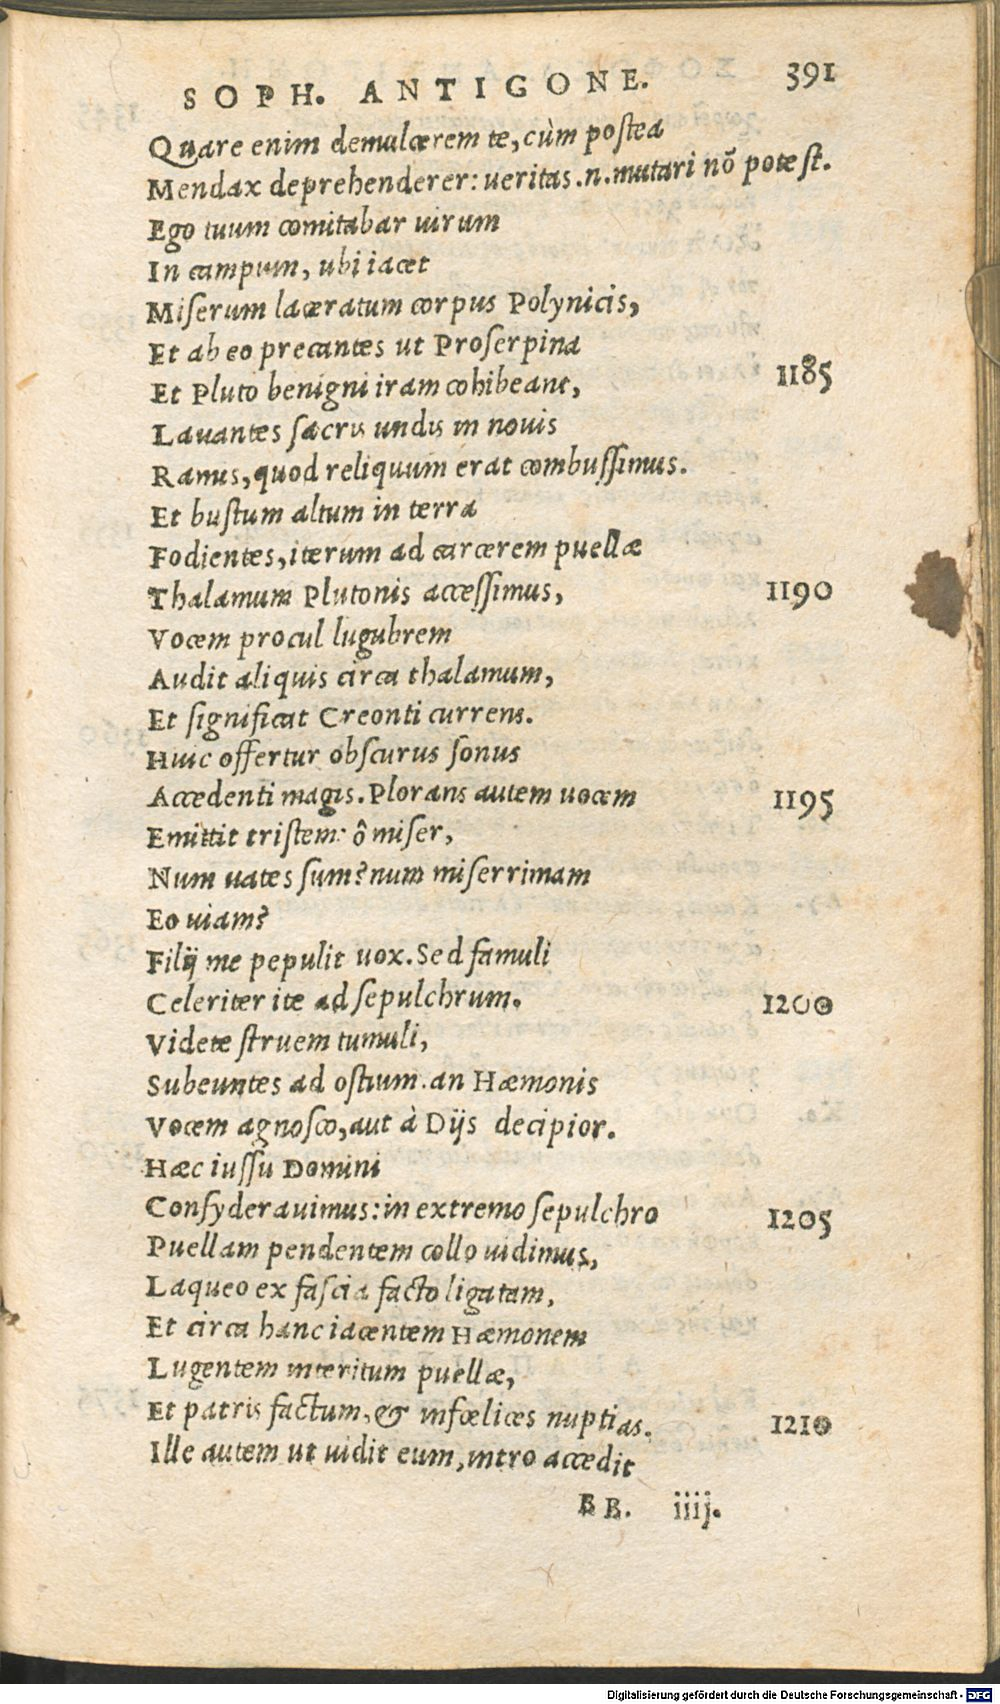 SOPH. ANTIGONE. 391
Quare enim demulcerem te, cùm postea
Mendax deprehenderer: ueritas .n. mutari nõ potest.
Ego tuum comitabar uirum
In campum, ubi iacet
Miserum laceratum corpus Polynicis,
Et ab eo precantes ut Proserpina
Et Pluto benigni iram cohibeant, 1185
Lauantes sacris undis in nouis
Ramis, quod reliquum erat combussimus.
Et bustum altum in terra
Fodientes, iterum ad carcerem puellæ
Thalamum Plutonis accessimus, 1190
Vocem procul lugubrem
Audit aliquis circa thalamum,
Et significat Creonti currens.
Huic offertur obscurus sonus
Accedenti magis. Plorans autem uocem 1195
Emittit tristem: ô miser,
Num uates sum? num miserrimam
Eo uiam?
Filij me pepulit uox. Sed famuli
Celeriter ite ad sepulchrum. 1200
Videte struem tumuli,
Subeuntes ad ostium. an Hæmonis
Vocem agnosco, aut à Dijs decipior.
Hæc iussu Domini
Consyderauimus: in extremo sepulchro 1205
Puellam pendentem collo uidimus,
Laqueo ex fascia facto ligatam,
Et circa hanc iacentem Hæmonem
Lugentem interitum puellæ,
Et patris factum, & infœlices nuptias. 1210
Ille autem ut uidit eum, intro accedit
BB. iiij.
Digitalisierung gefördert durch die Deutsche Forschungsgemeinschaft - DFG